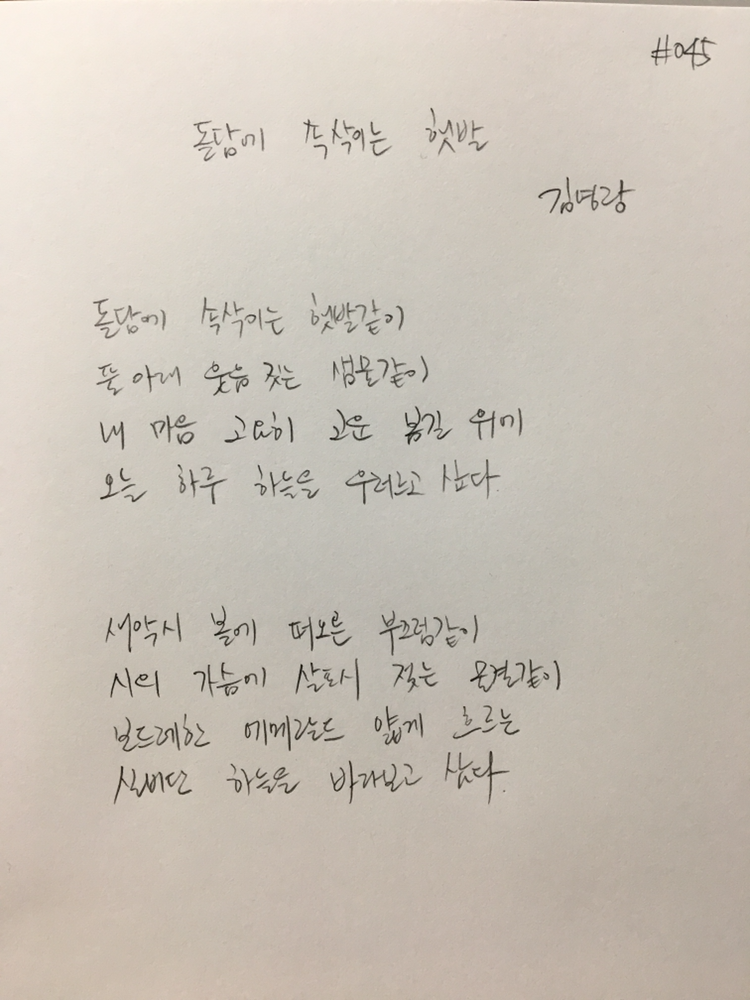 #045
돌담에 속삭이는 햇발
김영랑
돌담에 속삭이는 햇발같이
풀 아래 웃음 짓는 샘물같이
내 마음 고요히 고운 봄길 위에
오늘 하루 하늘을 우러르고 싶다.
새악시 볼에 떠오른 부끄럼같이
시의 가슴에 살포시 젖는 물결같이
보드레한 에메랄드 얇게 흐르는
실비단 하늘을 바라보고 싶다.